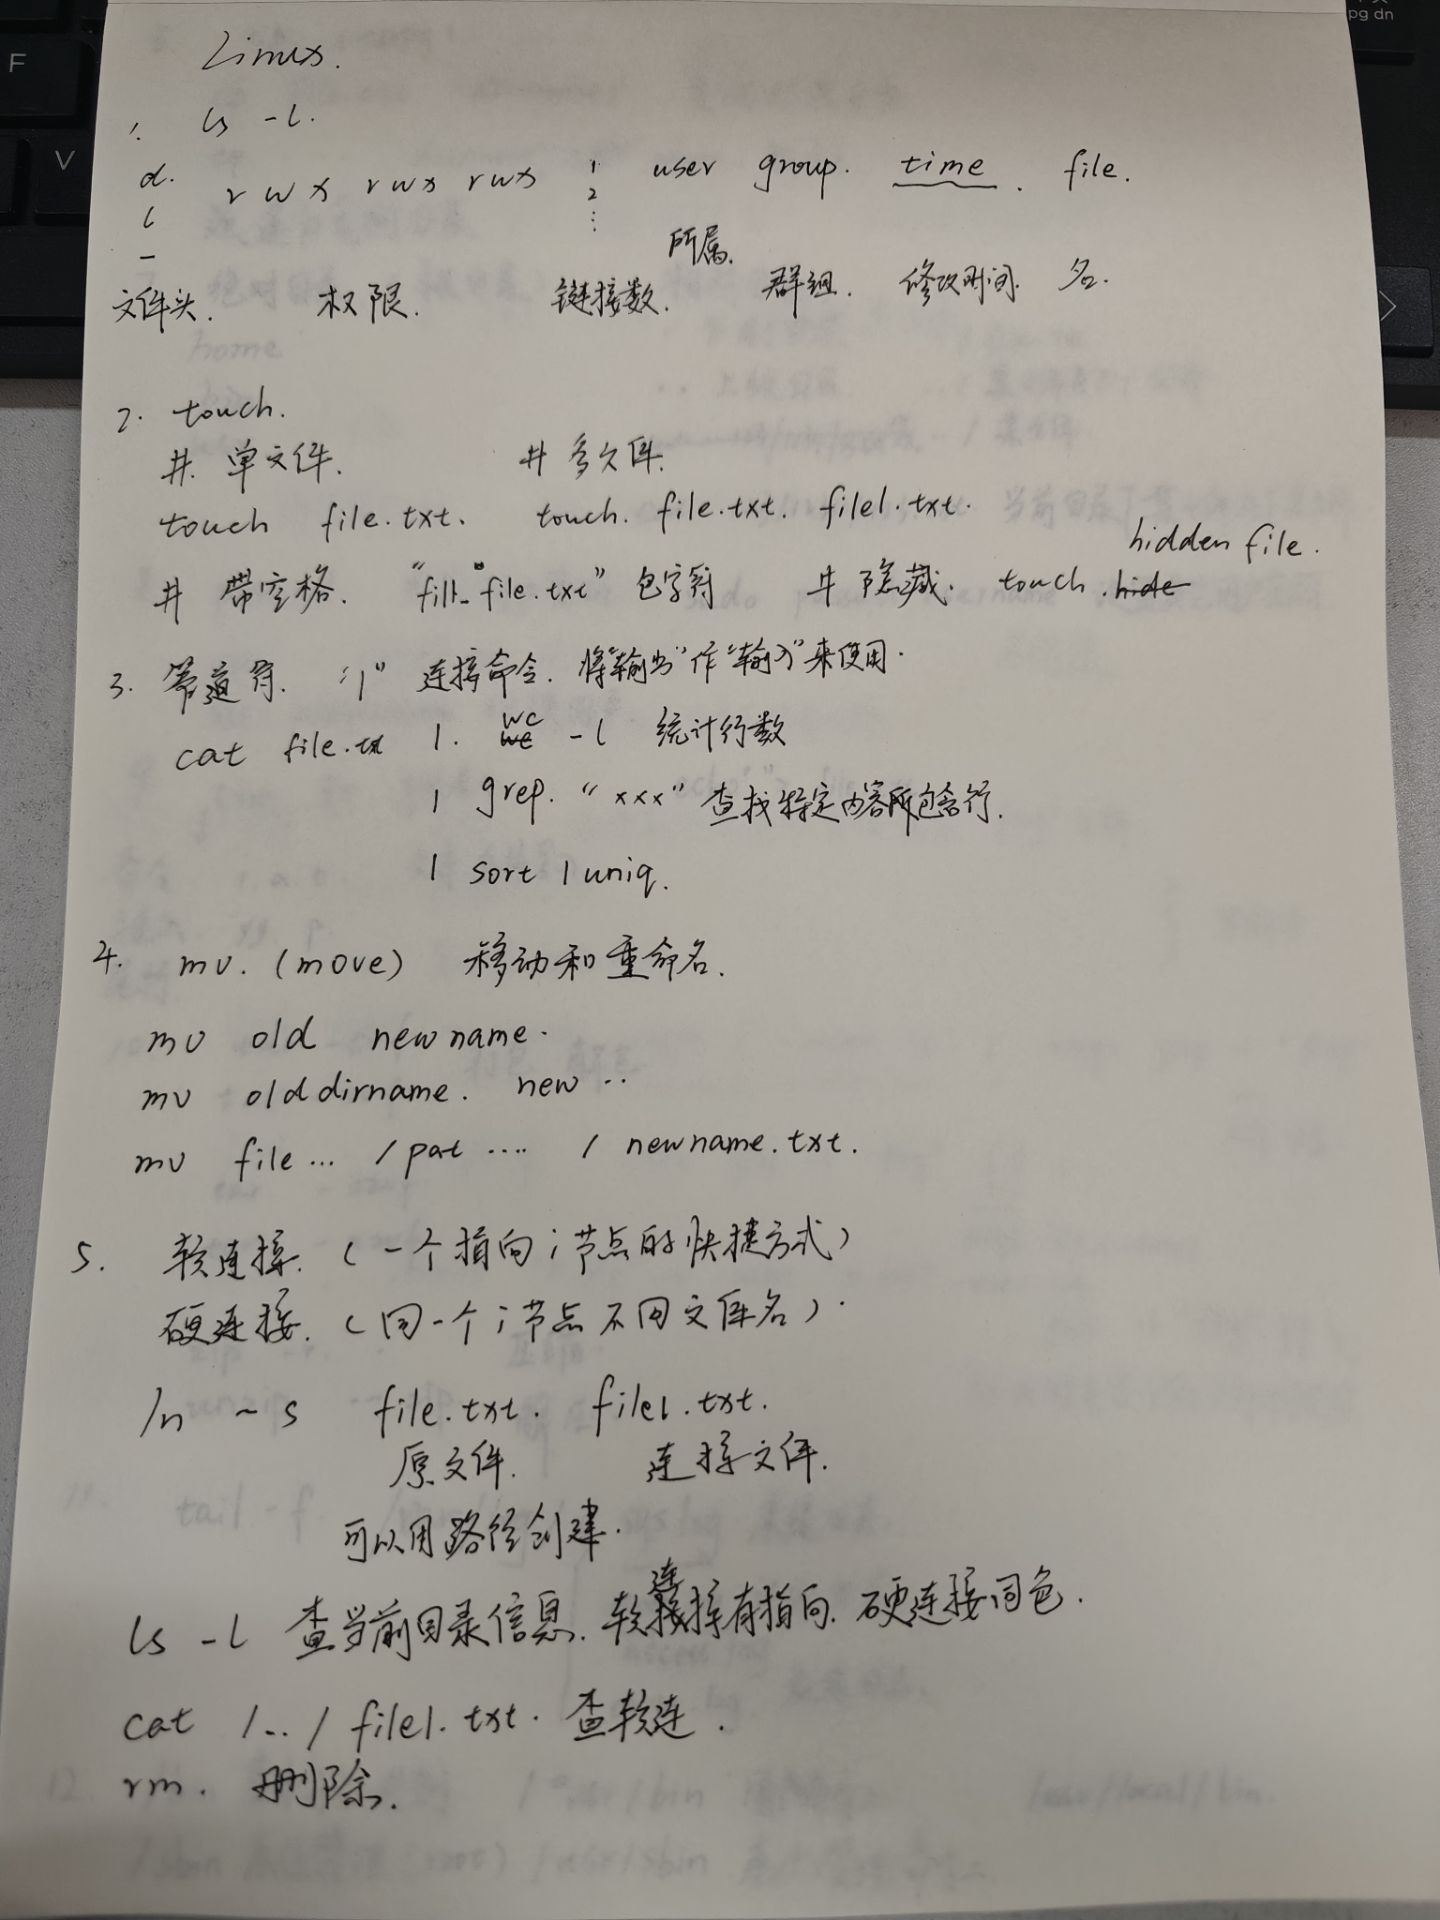 Linux.
1. ls -l.
d. rwx rwx rwx 1 user group. time. file.
l 2
- ⋮
所属.
文件头. 权限. 链接数. 群组. 修改时间. 名.
2. touch.
# 单文件. # 多文件.
touch file.txt. touch. file.txt. file1.txt.
hidden file.
# 带空格. file.txt" 包字符 # 隐藏. touch .hide
3. 管道符. "|" 连接命令. 将"输出"作"输入"来使用.
cat file.txt | wc -l 统计行数
| grep. "xxx" 查找特定内容所包含行.
| sort | uniq.
4. mv. (move) 移动和重命名.
mv old newname.
mv olddirname. new..
mv file... /pat .... / newname.txt.
5. 软连接. (一个指向i节点的快捷方式)
硬连接. (同一个i节点不同文件名).
ln -s file.txt. file1.txt.
原文件. 连接文件.
可以用路径创建.
ls -l 查当前目录信息. 软连接有指向. 硬连接同色.
cat /../file1.txt. 查软连.
rm. 删除.
F
V
pg dn